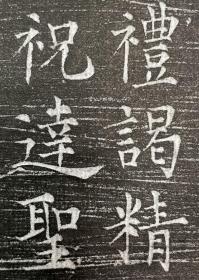 禮謁精
祝達聖